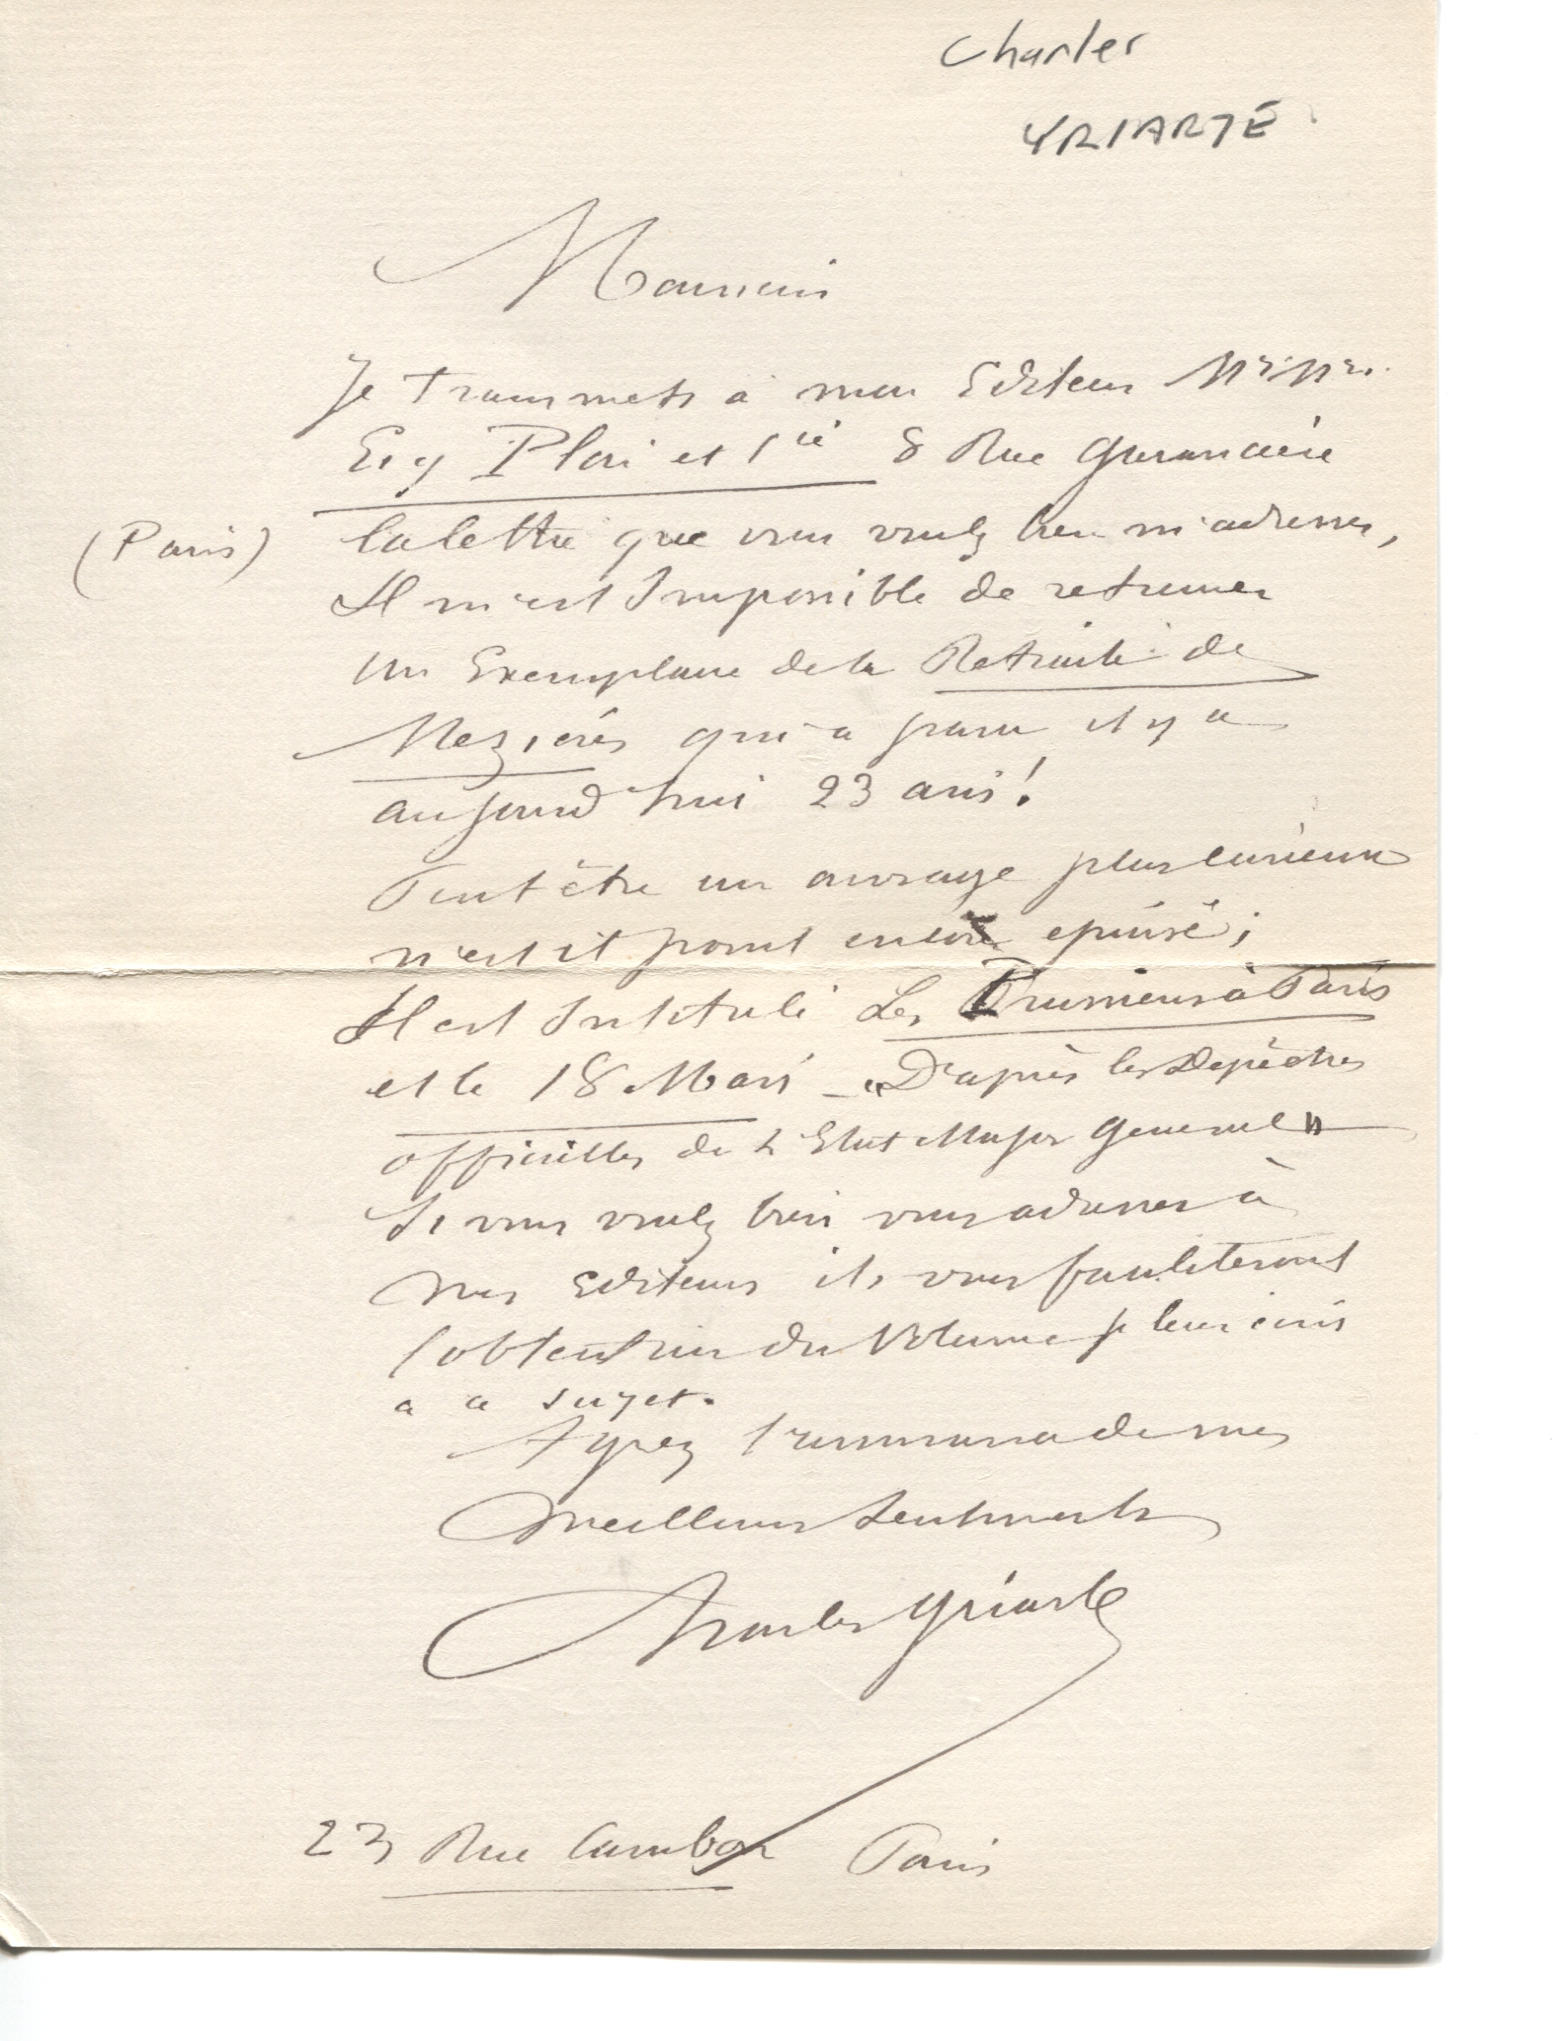 Charles
YRIARTE
Monsieur
Je transmets à mon Editeur Mrs.
Plon et Cie 8 Rue Garancière
(Paris) la lettre que vous voulez bien m'adresser,
Il m'est Impossible de retrouver
un Exemplaire de la Retraite de
Mezières qui a paru il y a
aujourd'hui 23 ans!
Peut être un ouvrage plus curieux
n'est il point encore epuisé;
Il est Intitulé Les Prussiens à Paris
et le 18 Mars - "D'après les Depêches
officielles de L'Etat Major General"
Si vous voulez bien vous adresser à
mes Editeurs ils vous faciliteront
l'obtention du Volume je leur écris
à ce sujet.
Agréez l'assurance de mes
meilleurs sentiments
Charles Yriarte
23 Rue Cambon Paris